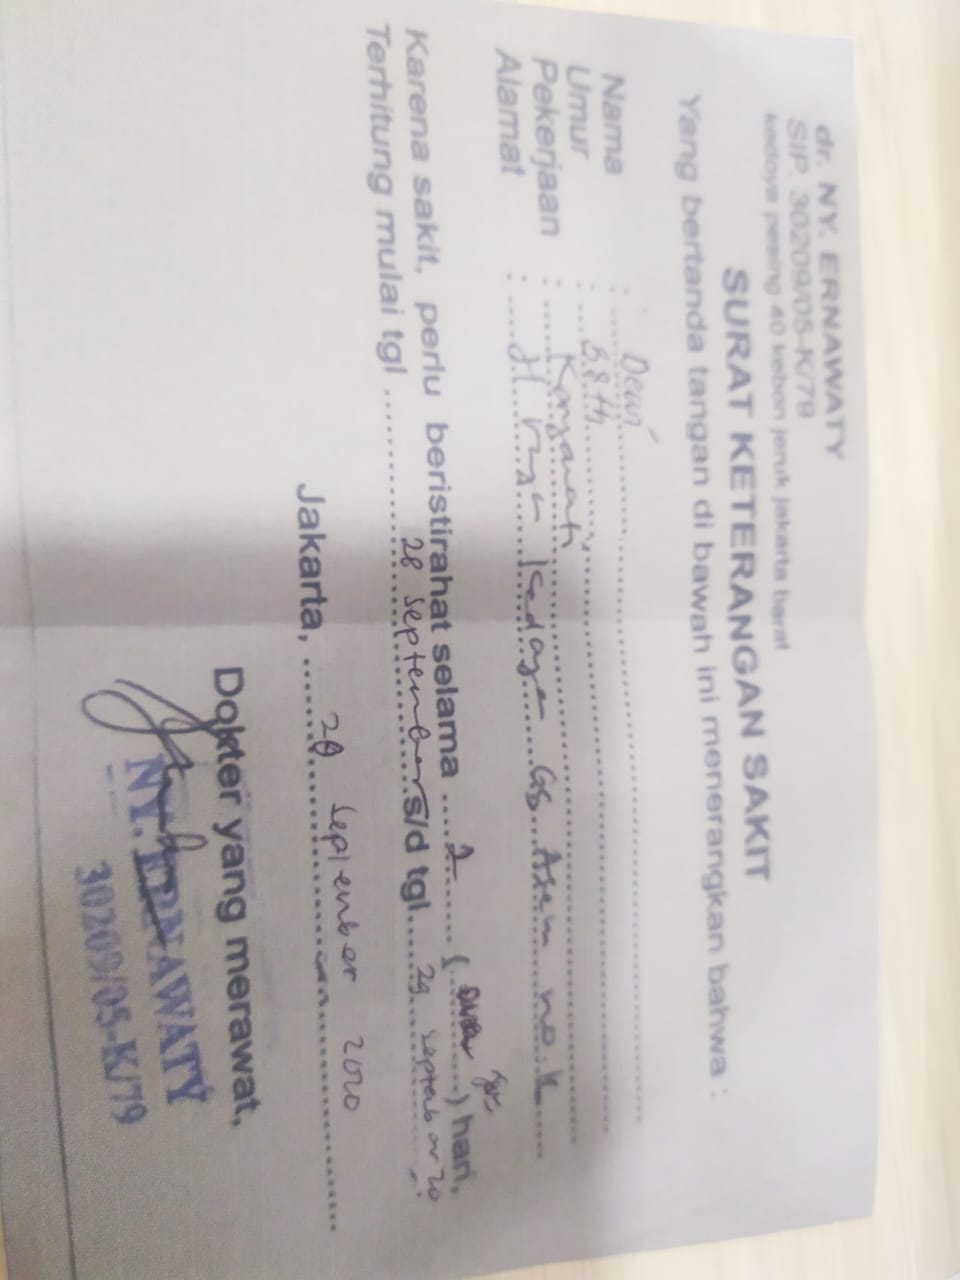 dr. NY. ERNAWATY
SIP. 30209/05-K/79
kedoya pesing 40 kebon jeruk jakarta barat
SURAT KETERANGAN SAKIT
Yang bertanda tangan di bawah ini menerangkan bahwa :
Nama : Dewi
Umur :
Pekerjaan : Karyawati
Alamat : Jl Kedoya Asem no
Karena sakit, perlu beristirahat selama 2 (dua) hari,
Terhitung mulai tgl 28 September s/d tgl. 29 September 20
Jakarta, 28 September 2020
Dokter yang merawat,
NY. ERNAWATY
30209/05-K/79